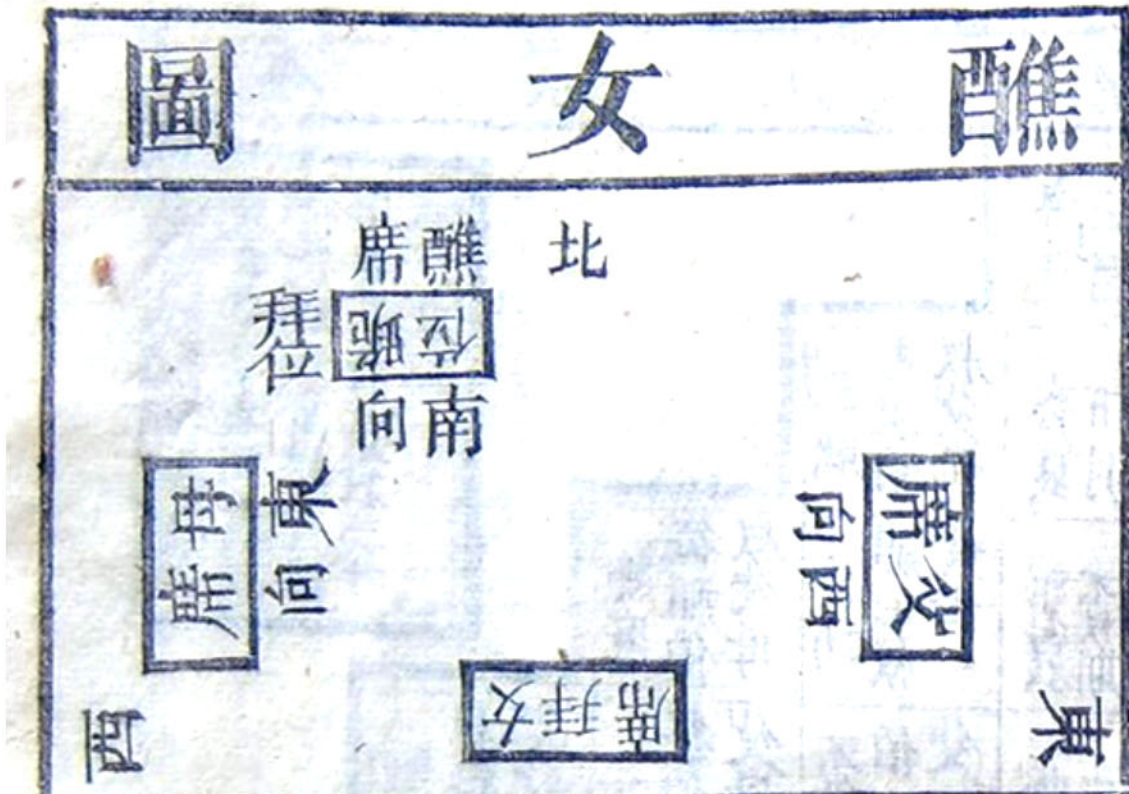 醮女圖
北
醮席
跪位
南向
拜位
父席
西向
母席
東向
女拜席
東
西